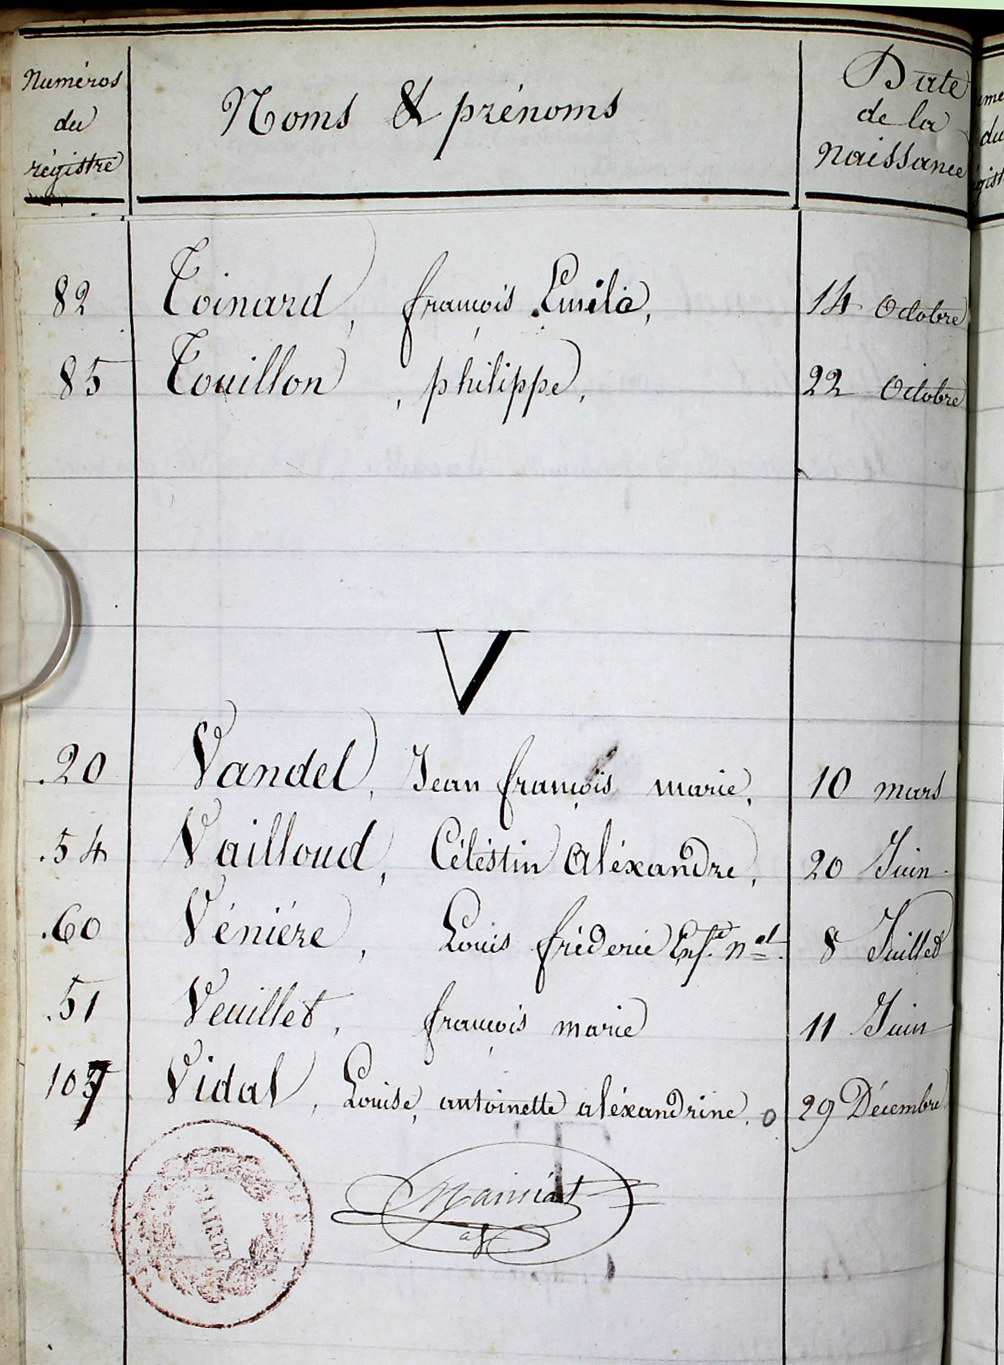 Numéros du régistre Noms & prénoms Date de la Naissance
82 Toinard, françois Emilie, 14 Octobre
85 Touillon, philippe, 22 Octobre
V
.20 Vandel, Jean françois marie, 10 mars
.54 Vailloud, Céléstin Aléxandre, 20 Juin
.60 Véniére, Louis fréderic Enft. nel. 8 Juillet
.51 Veuillet, françois marie 11 Juin
107 Vidal, Louise, antoinette aléxandrine, 29 Décembre
MAIRIE